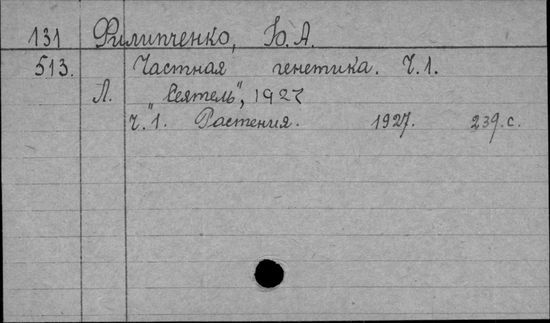 131 Филипченко, Ю. А.
513. Частная генетика. Ч.1.
Л. "Сеятель", 1927
Ч.1. Растения. 1927. 239.с.